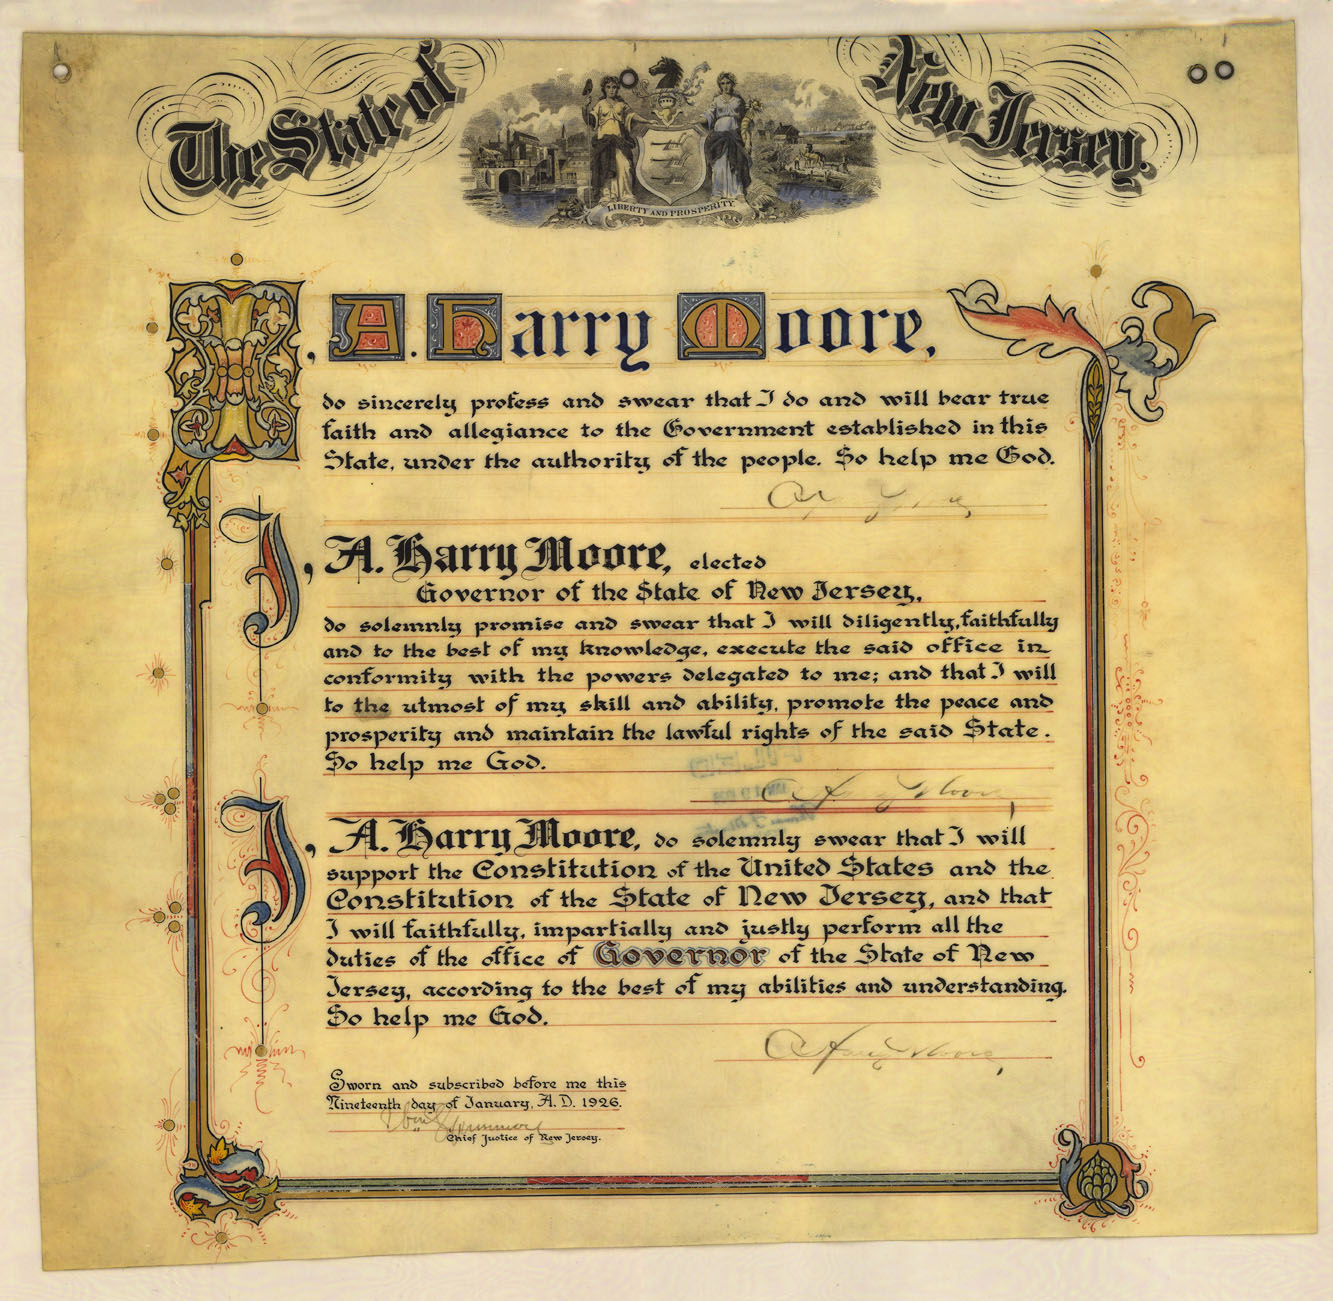 The State of New Jersey.
LIBERTY AND PROSPERITY
I, A. Harry Moore,
do sincerely profess and swear that I do and will bear true
faith and allegiance to the Government established in this
State, under the authority of the people. So help me God.
A Harry Moore,
I, A. Harry Moore, elected
Governor of the State of New Jersey,
do solemnly promise and swear that I will diligently, faithfully
and to the best of my knowledge, execute the said office in
conformity with the powers delegated to me; and that I will
to the utmost of my skill and ability, promote the peace and
prosperity and maintain the lawful rights of the said State.
So help me God.
A Harry Moore,
I, A. Harry Moore, do solemnly swear that I will
support the Constitution of the United States and the
Constitution of the State of New Jersey, and that
I will faithfully, impartially and justly perform all the
duties of the office of Governor of the State of New
Jersey, according to the best of my abilities and understanding.
So help me God.
A Harry Moore,
Sworn and subscribed before me this
Nineteenth day of January, A. D. 1926.
Chief Justice of New Jersey.